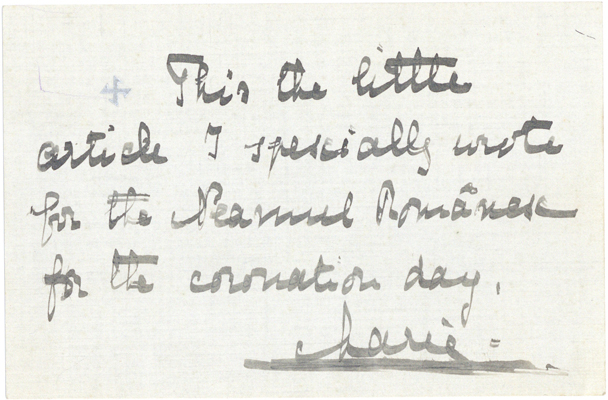 This the little
article I specially wrote
for the Neamul Românesc
for the coronation day.
Marie